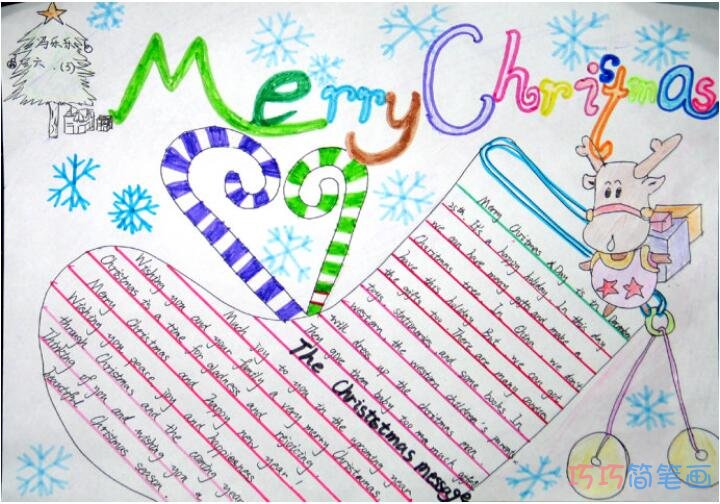 冯乐乐
六.(5)
Merry Christmas
Much joy to you in the upcoming year.
Wishing you and your family a very merry Christmas.
Christmas is a time for gladness and rejoicing
Merry Christmas and happy new year!
Wishing you peace joy and happiness
through Christmas and the coming year
Thinking of you and wishing you a
beautiful Christmas season.
The Christstmas message
Merry Christmas Day is in
25th. It's a happy holiday. In this day
we can have many gifts and make a
Christmas tree. In China, we don't
have this holiday. But we can get
the gifts too. There are many
toys, stationeries and some books. In
western, the western children's parents
will dress up the christmas men.
They give them baby too much gifts
巧巧简笔画